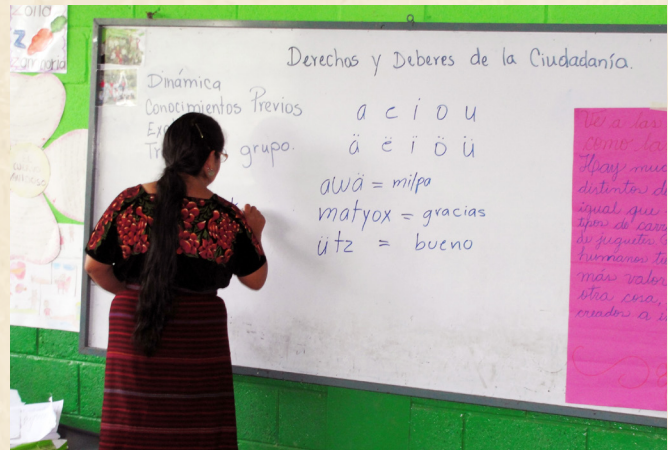 Derechos y Deberes de la Ciudadanía.
Dinámica
Conocimientos Previos
grupo.
a e i o u
ä ë ï ö ü
awä = milpa
matyox = gracias
ütz = bueno
Ver a las
como la
Hay muc
distintos d
igual que
tipos de carr
de juguetes
humanos
más valor
otra cosa,
creados a